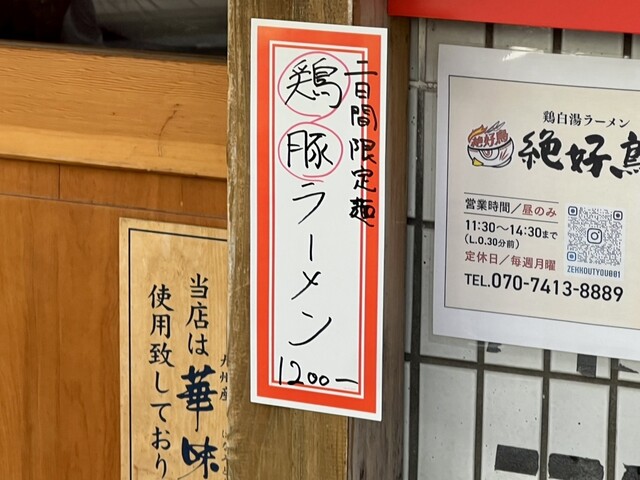 二日間限定麺
鶏豚ラーメン
1200ー
鶏白湯ラーメン
絶好鳥
絶好鳥
営業時間/昼のみ
11:30〜14:30まで
(L.O.30分前)
定休日/毎週月曜
TEL.070-7413-8889
ZEKKOUTYOU001
当店は
九州産
華味
使用致しており